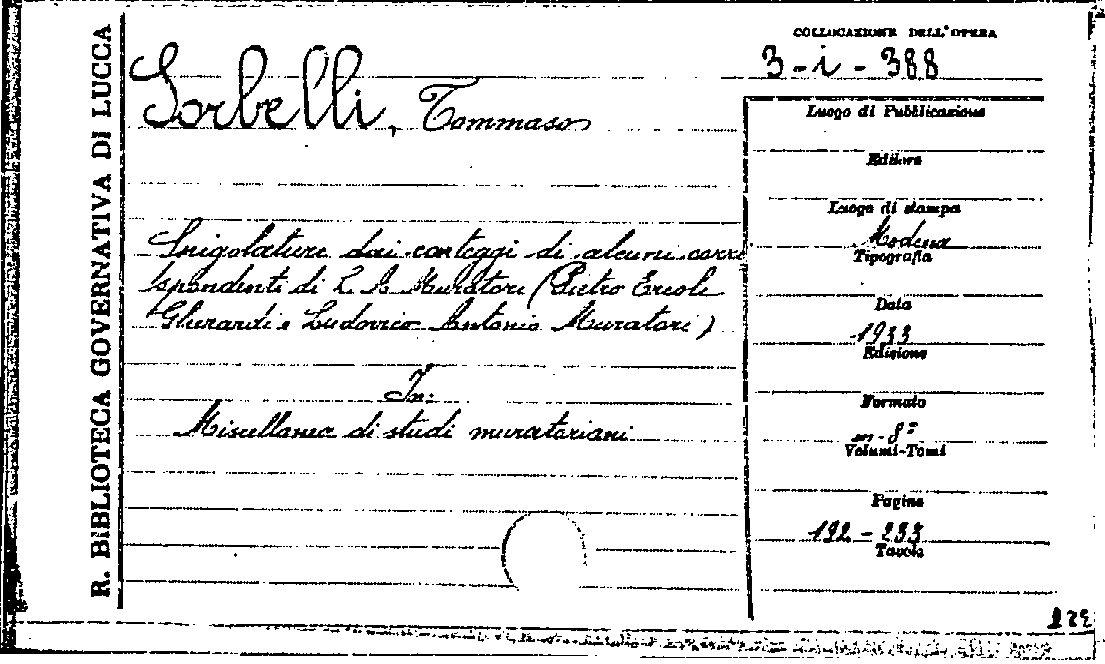 R. BIBLIOTECA GOVERNATIVA DI LUCCA
COLLOCAZIONE DELL'OPERA
3-i-388
Sorbelli, Tommaso
Luogo di Pubblicazione
Editore
Luogo di stampa
Modena
Tipografia
Data
1933
Edizione
Formato
in-8°
Volumi-Tomi
Pagine
192-233
Tavole
Spigolature dai carteggi di alcuni corri
spondenti di L. A. Muratori (Pietro Ercole
Gherardi e Ludovico Antonio Muratori)
In:
Miscellanea di studi muratoriani